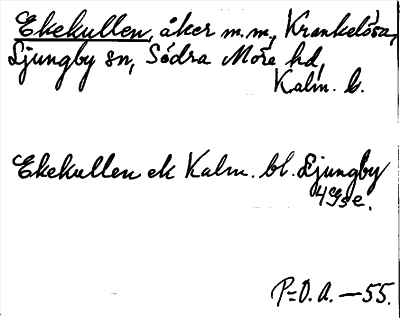 Ekekullen, åker m.m., Krankelösa,
Ljungby sn, Södra Möre hd,
Kalm. l.
Ekekullen ek Kalm. bl. Ljungby
4Gse.
P=O. A. — 55.